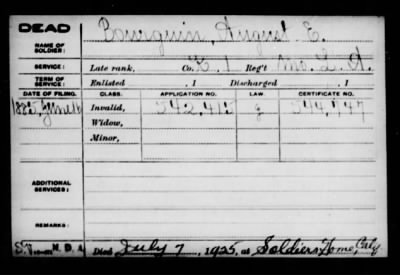 DEAD
NAME OF SOLDIER: Bourquin, August E.
SERVICE: Late rank, Co. K, 1 Reg't Mo. L. A.
TERM OF SERVICE: Enlisted , 1 Discharged , 1
DATE OF FILING. CLASS. APPLICATION NO. LAW. CERTIFICATE NO.
1885, June 16 Invalid, 542,415 g 544,747
Widow,
Minor,
ADDITIONAL SERVICES:
REMARKS:
N.D.A. Died July 7, 1925, at Soldiers Home, Calif